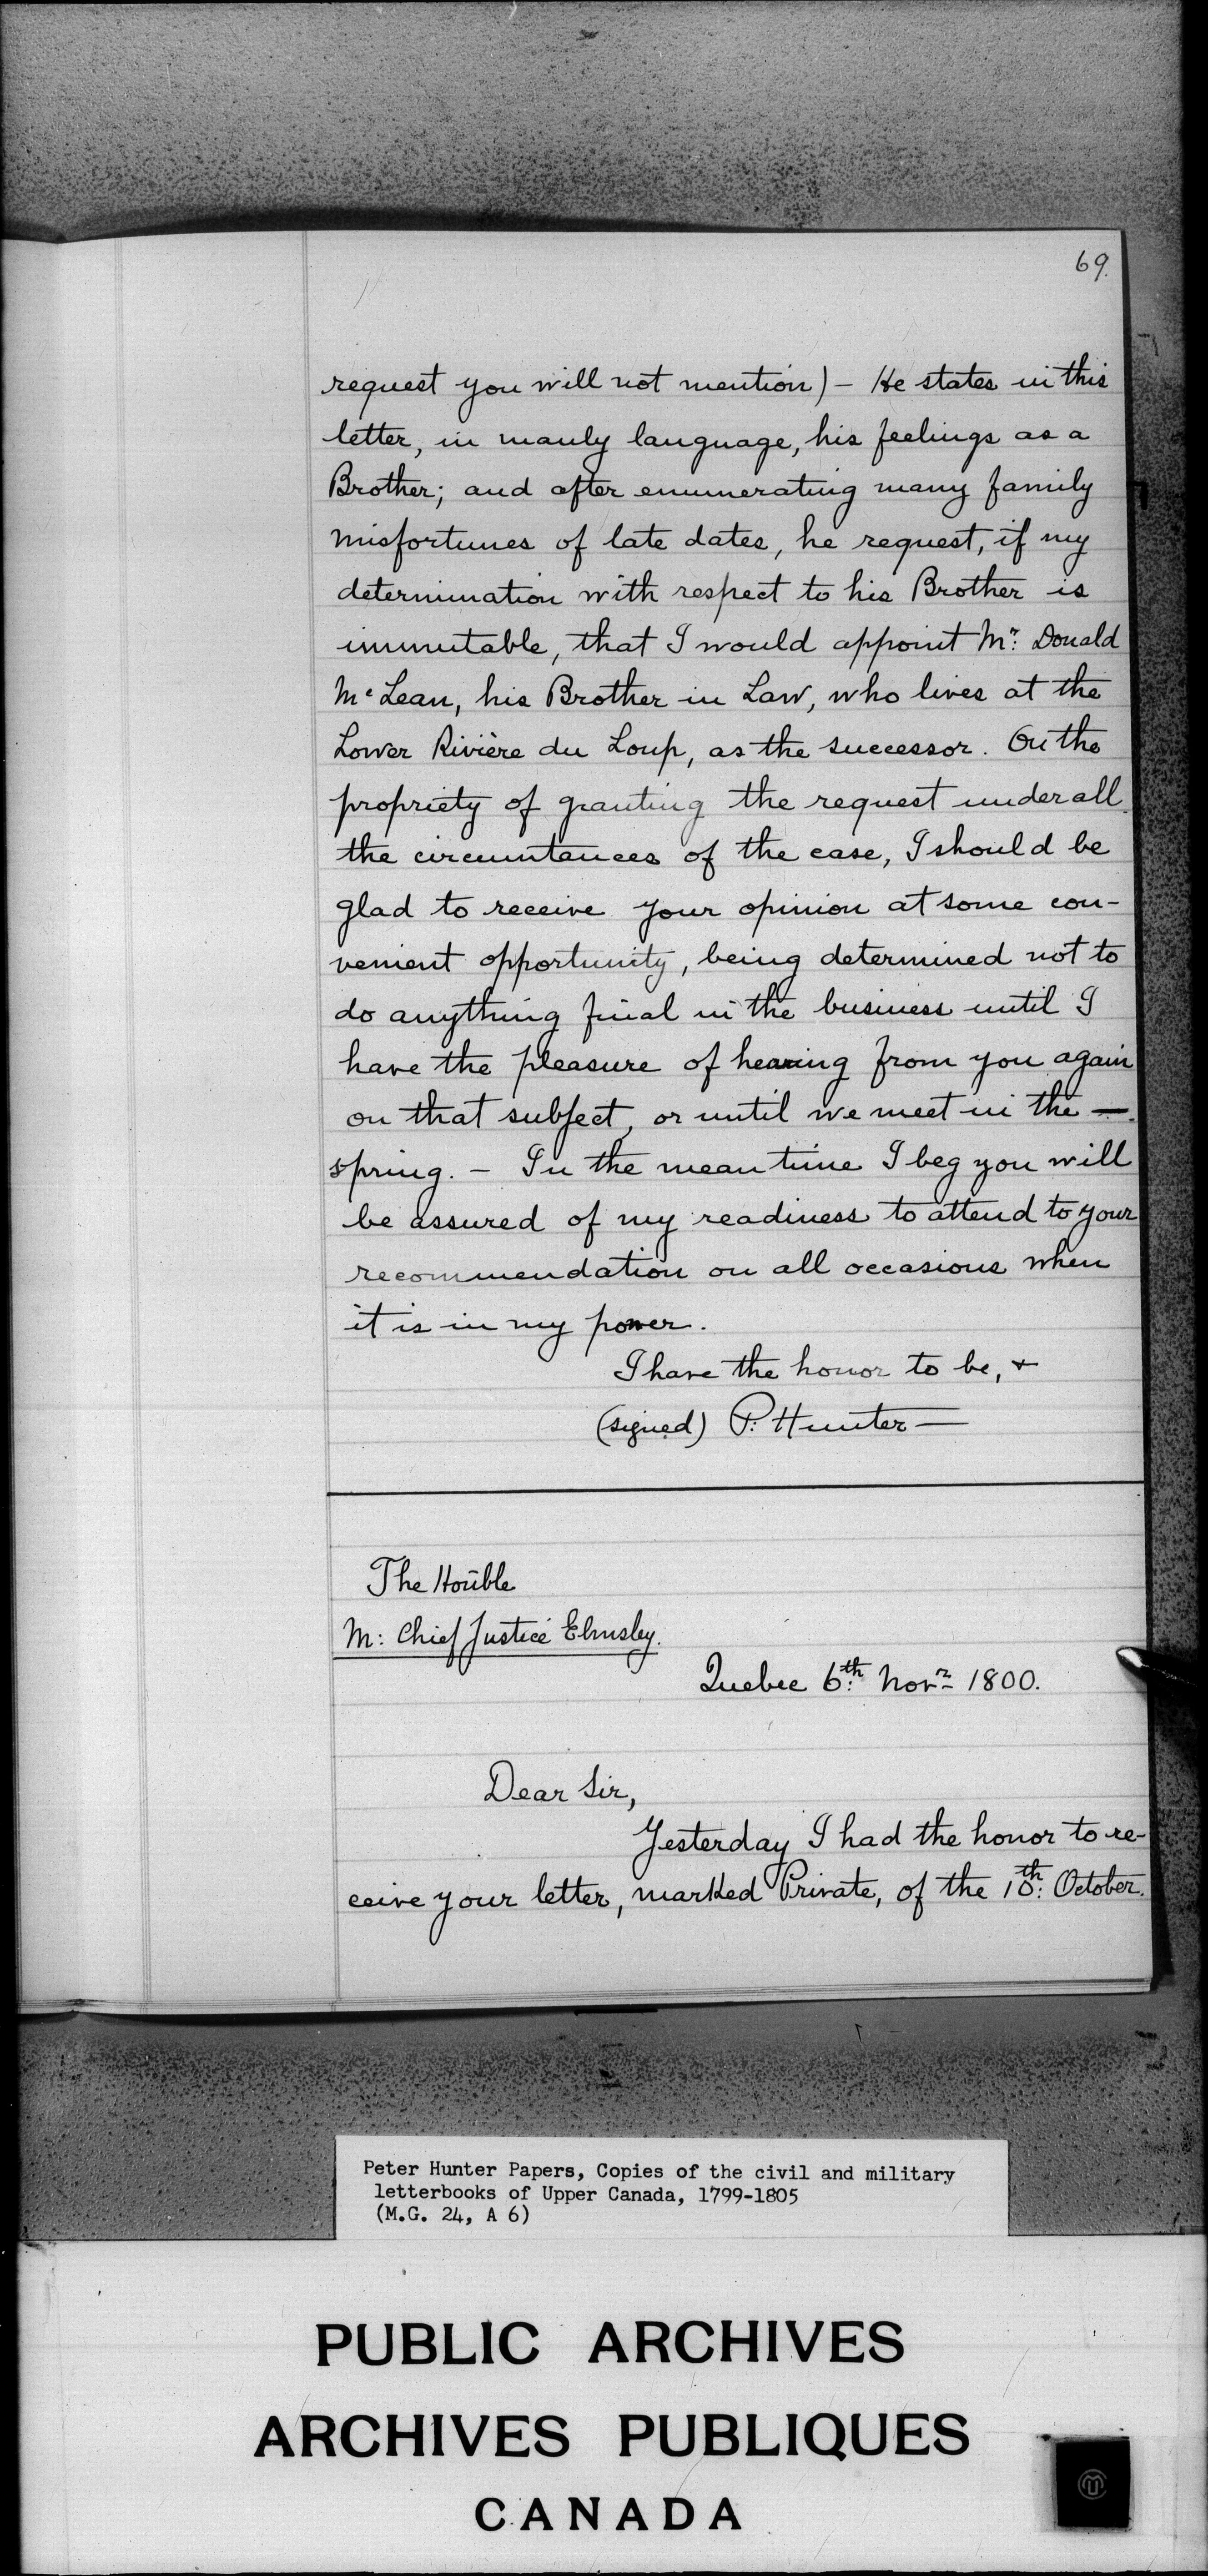 69.
request you will not mention) - He states in this
letter, in manly language, his feelings as a
Brother; and after enumerating many family
misfortunes of late dates, he request, if my
determination with respect to his Brother is
immutable, that I would appoint Mr: Donald
McLean, his Brother in Law, who lives at the
Lower Rivière du Loup, as the successor. On the
propriety of granting the request under all
the circumtances of the case, I should be
glad to receive your opinion at some con-
venient opportunity, being determined not to
do anything final in the business until I
have the pleasure of hearing from you again
on that subject, or until we meet in the —
spring. - In the mean time I beg you will
be assured of my readiness to attend to your
recommendation on all occasions when
it is in my power.
I have the honor to be, +
(signed) P: Hunter —
The Honble
M: Chief Justice Elmsley.
Quebec 6th: Novr 1800.
Dear Sir,
Yesterday I had the honor to re-
ceive your letter, marked Private, of the 10th: October.
Peter Hunter Papers, Copies of the civil and military
letterbooks of Upper Canada, 1799-1805
(M.G. 24, A 6)
PUBLIC ARCHIVES
ARCHIVES PUBLIQUES
CANADA